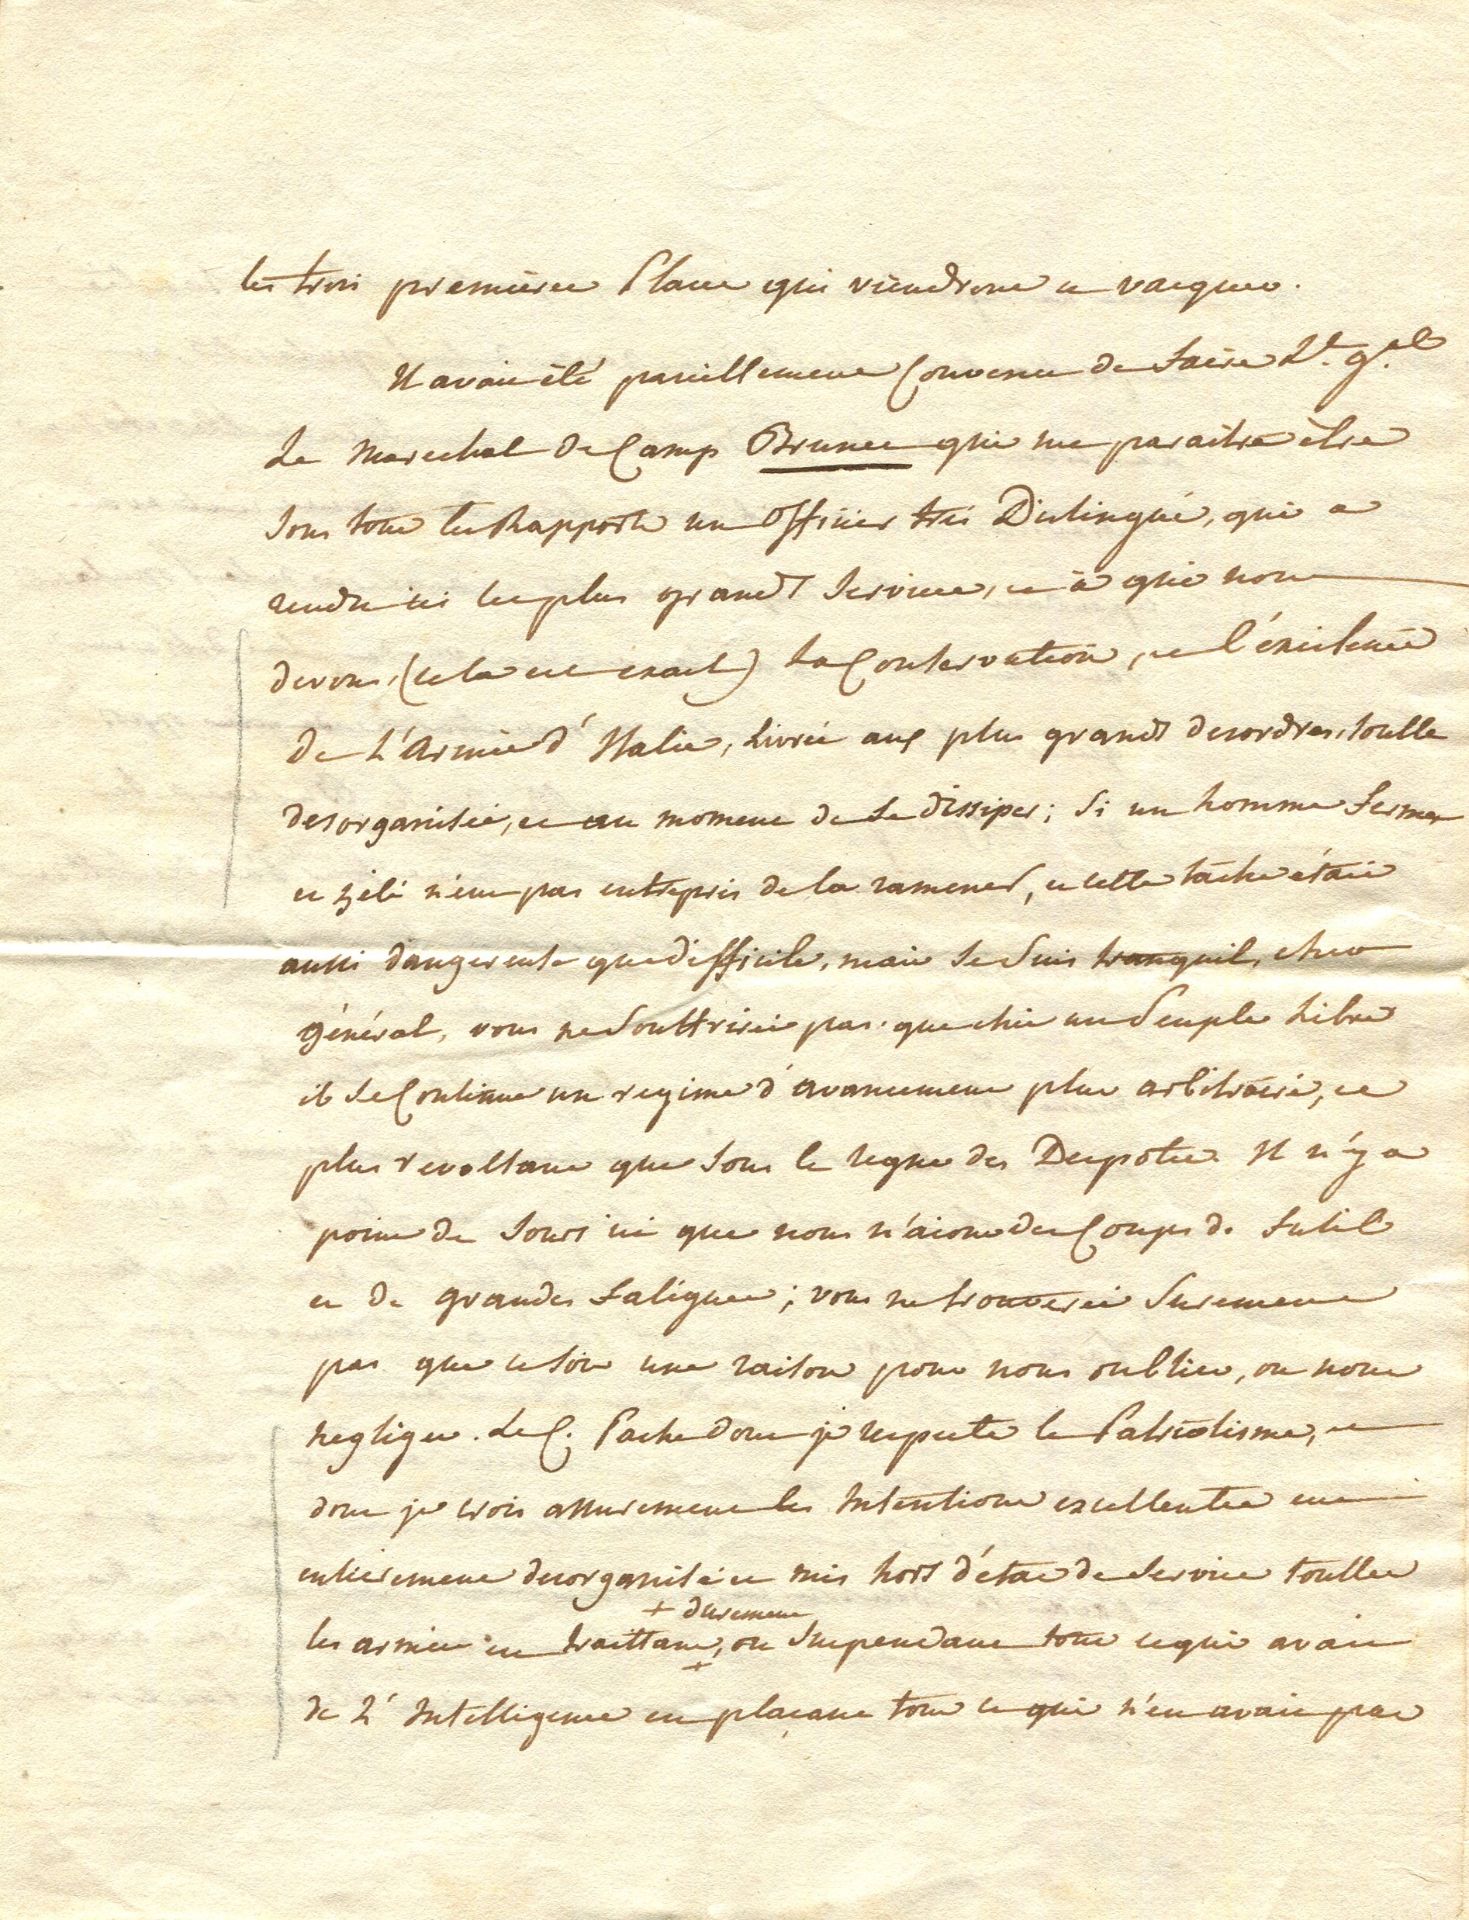 les trois premieres Places qui viendront a vacquer.
Il avait été pareillement Convenu de faire Lt. gal
Le marechal de Camp Brunet qui me parait etre
sous tous les Rapports un officier très Distingué, qui a
rendu ici les plus grands services, et à qui nous
devons, (cela est exact) la Conservation, et l'éxistence
de L'Armée d'Italie, Livrée aux plus grands desordres, toutte
desorganisée, et au moment de se dissiper; si un homme ferme
et zélé n'eut pas entrepris de la ramener, et cette tâche était
aussi dangereuse que difficile, mais je suis tranquil, cher
général, vous ne souffrirés pas que chés un Peuple Libre
il se Continue un regime d'avancement plus arbitraire, et
plus revoltant que sous le regne des Despotes. Il n'y a
point de jours ici que nous n'aions des Coups de fusil
et de grandes fatigues; vous ne trouverés surement
pas que ce soit une raison pour nous oublier, ou nous
negliger. Le C. Pache dont je respecte le Patriotisme, et
dont je crois assurement les Intentions excellentes a
entierement desorganisé et mis hors d'état de service touttes
+ durement
les armées en traittant, ou suspendant tout ce qui avait
+
de L'Intelligence en plaçant tout ce qui n'en avait pas